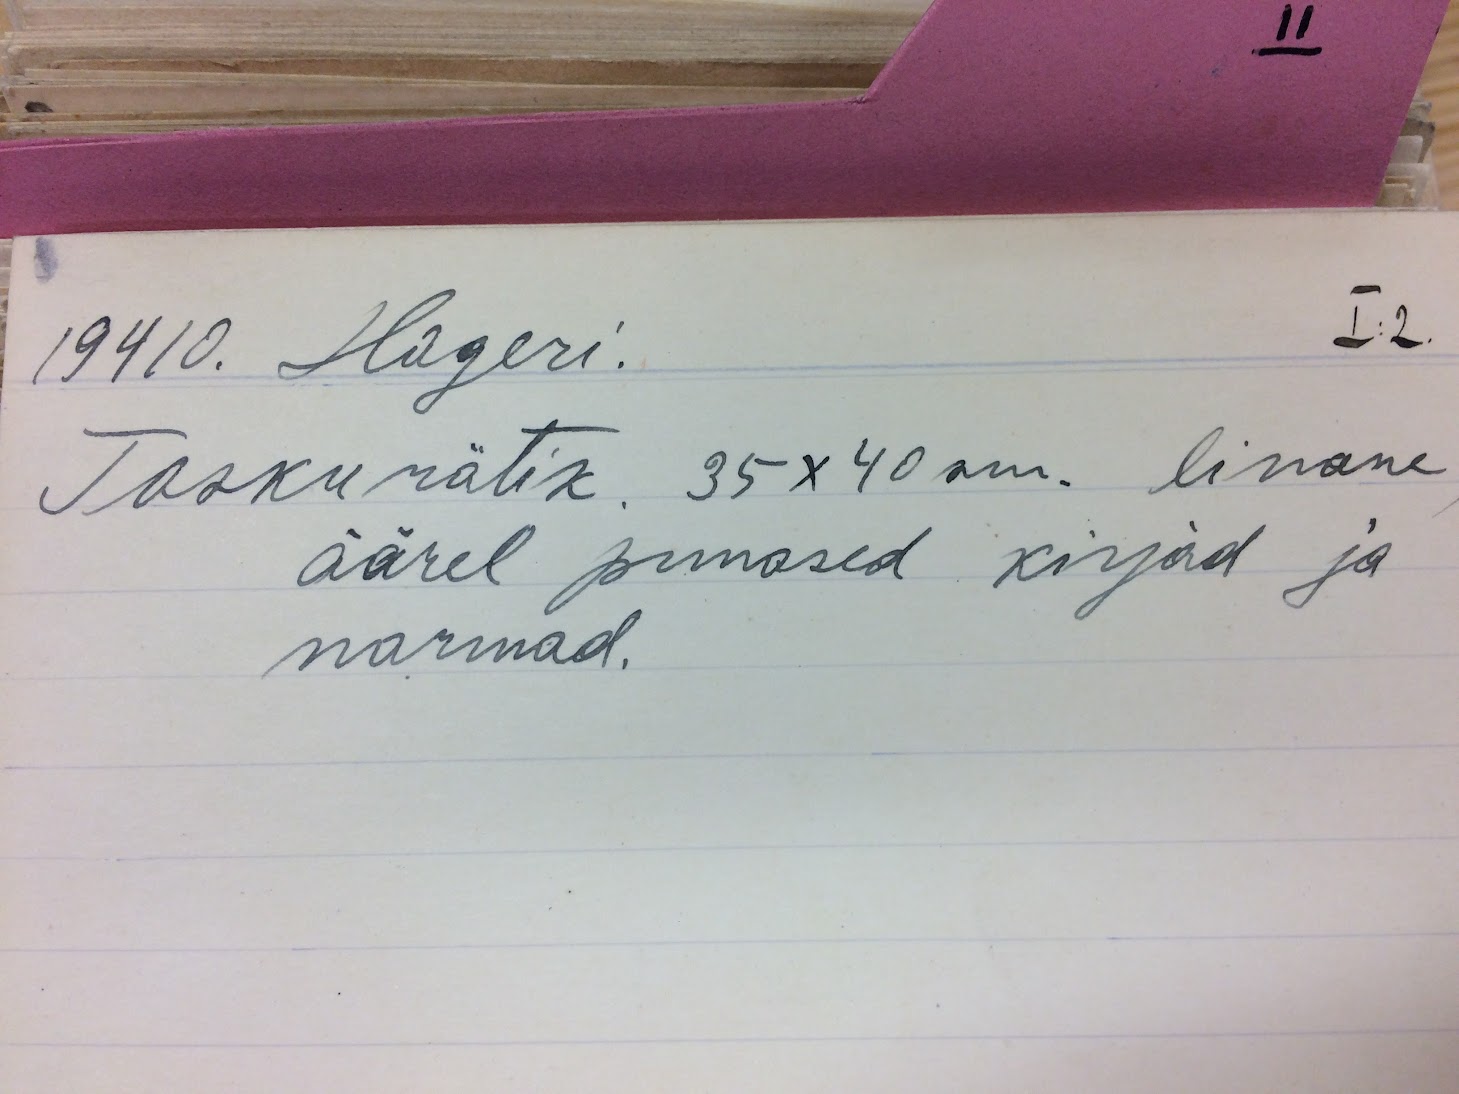 II
19410. Hageri. I:2.
Taskurätik. 35x40 sm. linane,
äärel punased kirjad ja
narmad.